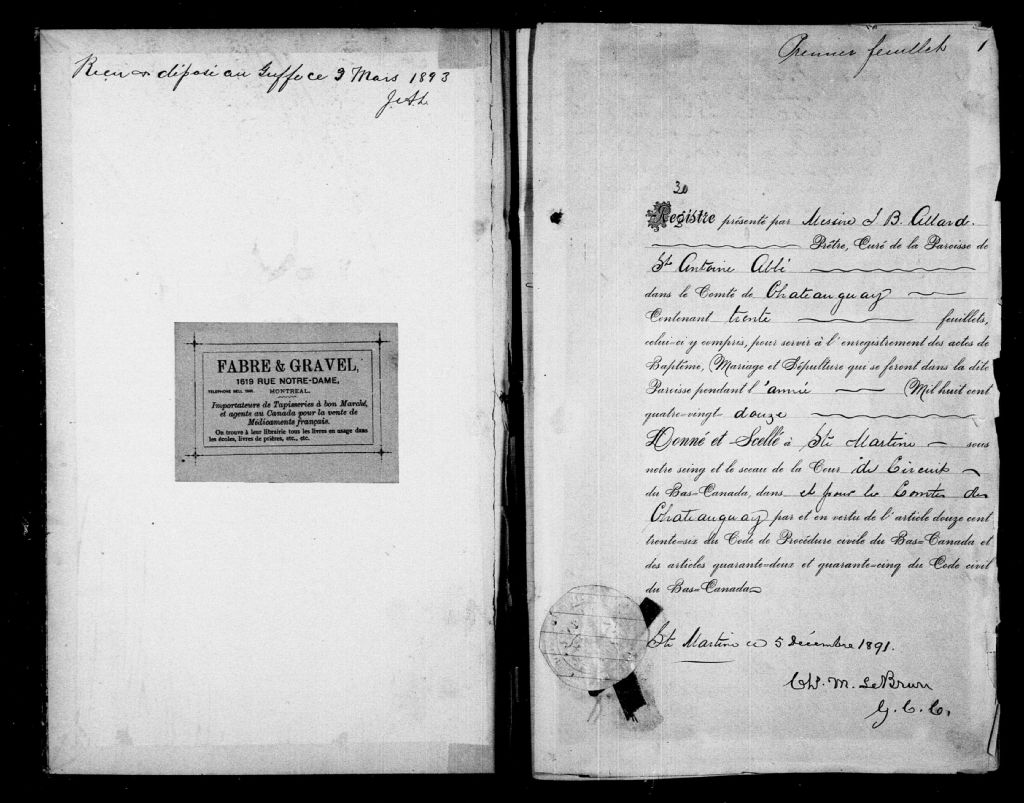 Reçu & déposé au Greffe ce 9 Mars 1893
FABRE & GRAVEL,
1619 RUE NOTRE-DAME,
TELEPHONE BELL MONTREAL.
Importateurs de Tapisseries à bon Marché,
et agents au Canada pour la vente de
Médicaments français.
On trouve à leur librairie tous les livres en usage dans
les écoles, livres de prières, etc., etc.
Premier feuillet 1
30
Registre présenté par Messire J B. Allard.
Prêtre, Curé de la Paroisse de
St Antoine Abbé
dans le Comté de Chateauguay
Contenant trente feuillets,
celui-ci y compris, pour servir à l'enregistrement des actes de
Baptême, Mariage et Sépulture qui se feront dans la dite
Paroisse pendant l'année Mil huit cent
quatre-vingt douze
Donné et Scellé à Ste Martine sous
notre seing et le sceau de la Cour de Circuit
du Bas-Canada, dans et pour le Comté de
Chateauguay par et en vertu de l'article douze cent
trente-six du Code de Procédure civile du Bas-Canada et
des articles quarante-deux et quarante-cinq du Code civil
du Bas-Canada
Ste Martine ce 5 décembre 1891.
Chs. M. LeBrun
G. C. C.